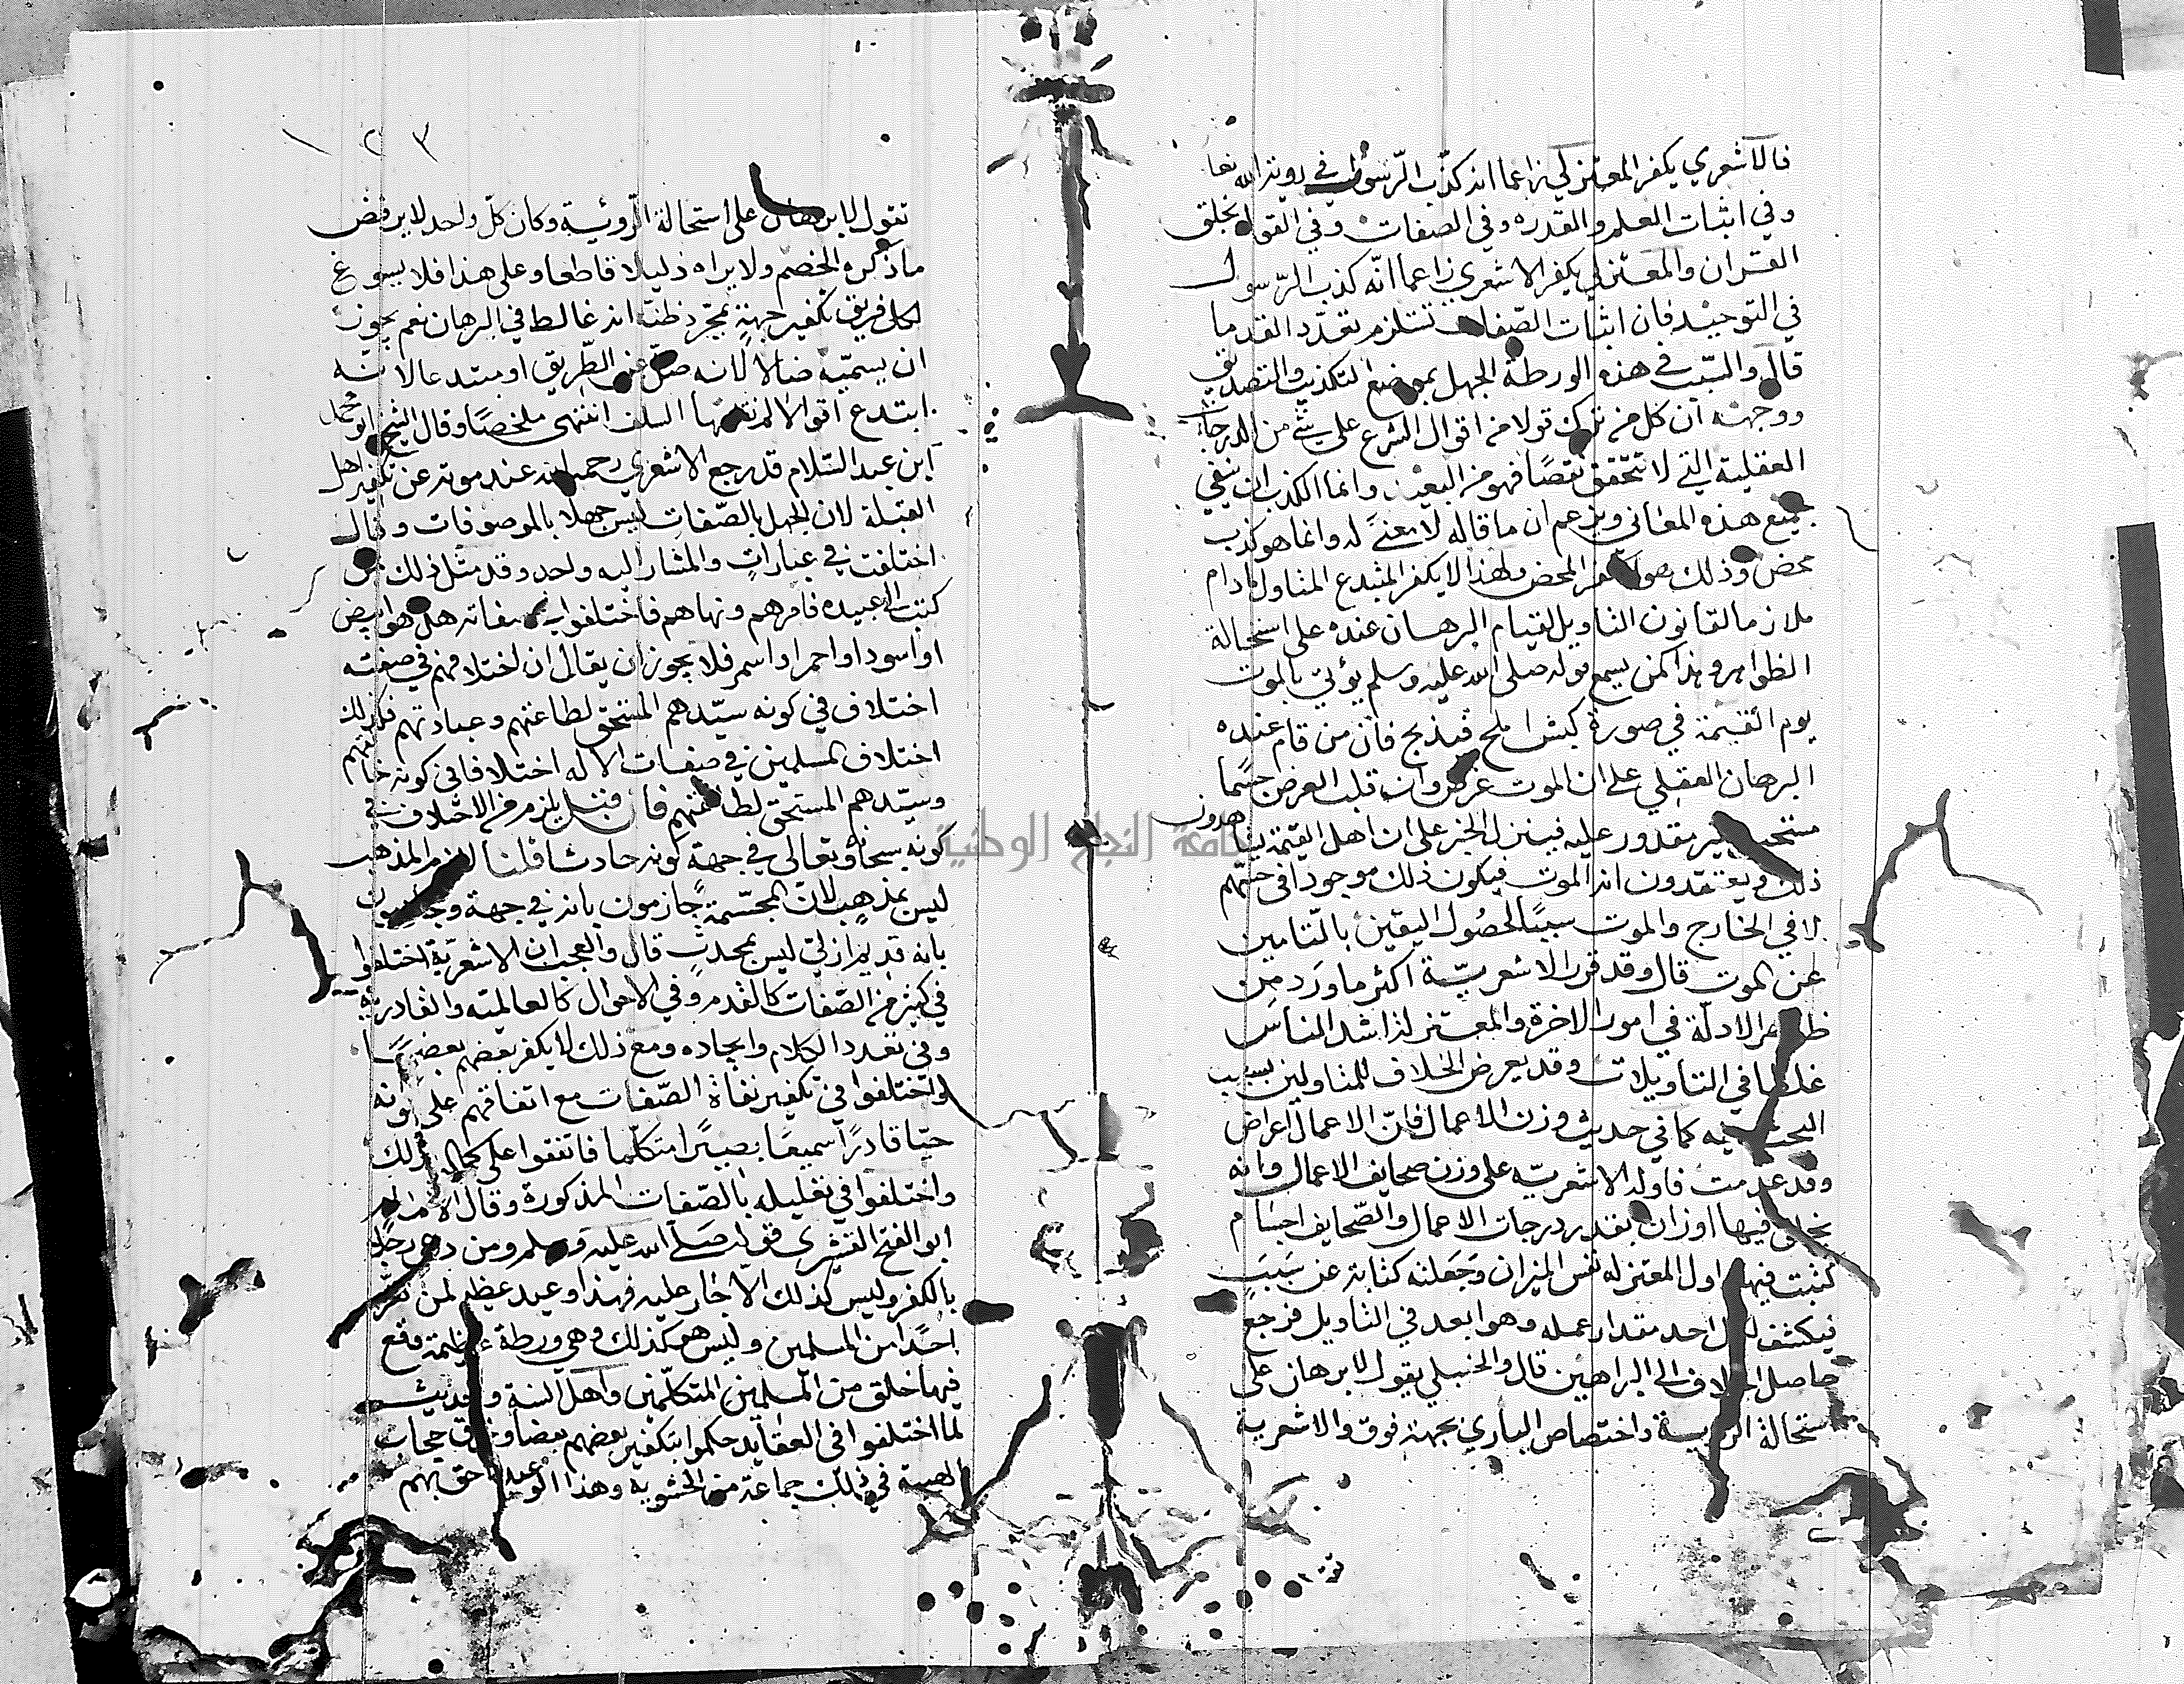 فالاشعري يكفر المعتزلي زاعما انه كذب الرسول في رويته الله تعا
وفي اثبات العلم والقدره وفي الصفات وفي القول بخلق
القران والمعتزلي يكفر الاشعري زاعما انه كذب الرسول
في التوحيد فان اثبات الصفات تستلزم تعدد القدما
قال والسبب في هذه الورطة الجهل بموضع التكذيب والتصديق
ووجهه ان كل من ترك قولا من اقوال الشرع على شئ من الدرجات
العقلية التي لا تتحقق نقصا فهو من وانما الكذب ان ينفي
جميع هذه المعاني ويزعم ان ما قاله لا معنى له وانما هو كذب
محض وذلك هو الكفر المحض ولهذا لا يكفر المبتدع المتاول مادام
ملازما لقانون التاويل لقيام البرهان عنده على استحالة
الظواهر وهذا كمن يسمع قوله صلى الله عليه وسلم يؤتي بالموت
يوم القيمة في صورة كبش املح فيذبح فان من قام عنده
البرهان العقلي على ان الموت عرض وان قلب العرض جسما
مستحيل غير مقدور عليه فينزل الخبر على ان اهل القيمة يشاهدون
ذلك ويعتقدون انه الموت فيكون ذلك موجودا في حسهم
لا في الخارج والموت سببا لحصول اليقين بالتامين
عن الموت قال وقد قرر الاشعرية اكثر ما ورد من
ظواهر الادلة في امور الاخرة والمعتزلة اشد الناس
غلطا في التاويلات وقد يعرض الخلاف للمتاولين بسبب
البحث فيه كما في حديث وزن الاعمال فان الاعمال اعراض
وقد عدمت فاوله الاشعرية على وزن صحايف الاعمال وانه
يخلق فيها اوزان بقدر درجات الاعمال والصحايف اجسام
كتبت فيها واول المعتزله نفس الميزان وجعلته كناية عن سبب
فيكشف لكل احد مقدار عمله وهو ابعد في التاويل فرجع
حاصل الخلاف الى البراهين قال والحنبلي يقول لا برهان على
استحالة الرؤية واختصاص الباري بجهة فوق والاشعرية
١٢٣
تقول لا برهان على استحالة الرؤية وكان كل واحد لا يرفض
ما ذكره الخصم ولا يراه دليلا قاطعا وعلى هذا فلا يسوغ
لكل فريق تكفير خصمه بمجرد ظنه انه غالط في البرهان نعم يجوز
ان يسميه ضالا لانه ضل عن الطريق او مبتدعا لانه
ابتدع اقوالا لم تقلها السلف انتهى ملخصا وقال الشيخ ابو محمد
ابن عبد السلام قد رجع الاشعري رحمه الله عند موته عن تكفير اهل
القبلة لان الجهل بالصفات ليس جهلا بالموصوفات وقال
اختلفت في عبارات والمشار اليه واحد وقد مثل ذلك بمن
كتب الى عبيده فامرهم ونهاهم فاختلفوا في صفاته هل هو ابيض
او اسود او احمر او اسمر فلا يجوز ان يقال ان اختلافهم في صفته
اختلاف في كونه سيدهم المستحق لطاعتهم وعبادتهم فكذلك
اختلاف المسلمين في صفات الاله اختلافا في كونه خالقهم
وسيدهم المستحق لطاعتهم فان قيل يلزم من الاختلاف في
كونه سبحانه وتعالى في جهة كونه حادثا قلنا لازم المذهب
ليس بمذهب لان المجسمة جازمون بانه في جهة وجازمون
بانه قديم ازلي ليس بمحدث قال والعجب ان الاشعرية اختلفوا
في كثير من الصفات كالقدم وفي الاحوال كالعالمية والقادرية
وفي تعدد الكلام واتحاده ومع ذلك لا يكفر بعضهم بعضا
واختلفوا في تكفير نفاة الصفات مع اتفاقهم على كونه
حيا قادرا سميعا بصيرا متكلما فاتفقوا على كماله بذلك
واختلفوا في تعليله بالصفات المذكورة وقال الامام
ابو الفتح القشيري قوله صلى الله عليه وسلم ومن دعى رجلا
بالكفر وليس كذلك الا حار عليه فهذا وعيد عظيم لمن كفر
احدا من المسلمين وليس هو كذلك وهي ورطة عظيمة وقع
فيها خلق من المسلمين المتكلمين واهل السنة والحديث
لما اختلفوا في العقايد حكموا بتكفير بعضهم بعضا وخرق حجاب
الهيبة في ذلك جماعة من الحشوية وهذا الوعيد لاحق بهم
جامعة النجاح الوطنية